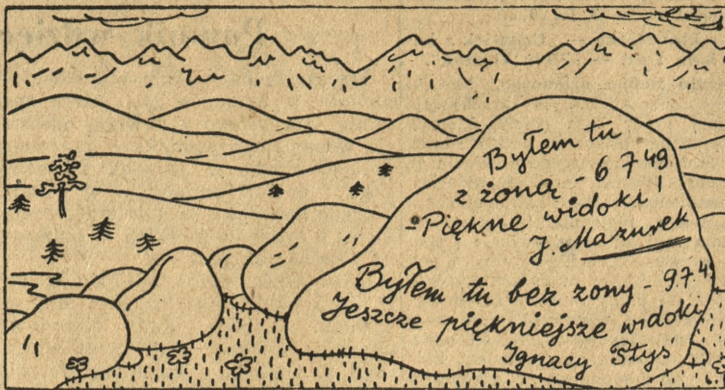 Byłem tu
z żoną - 6 7 49
- Piękne widoki!
J. Mazurek
Byłem tu bez żony - 9 7 49
Jeszcze piękniejsze widoki
Ignacy Styś